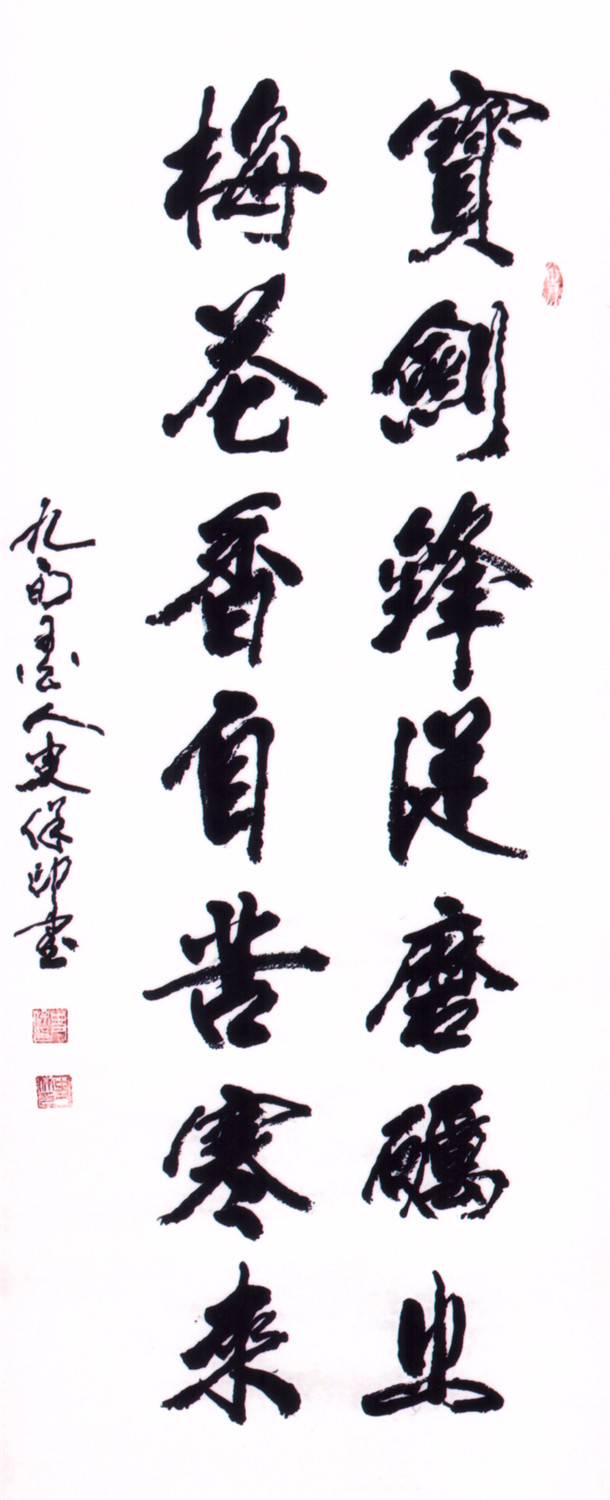 寶劍鋒從磨礪出
梅花香自苦寒來
墨人史保印書